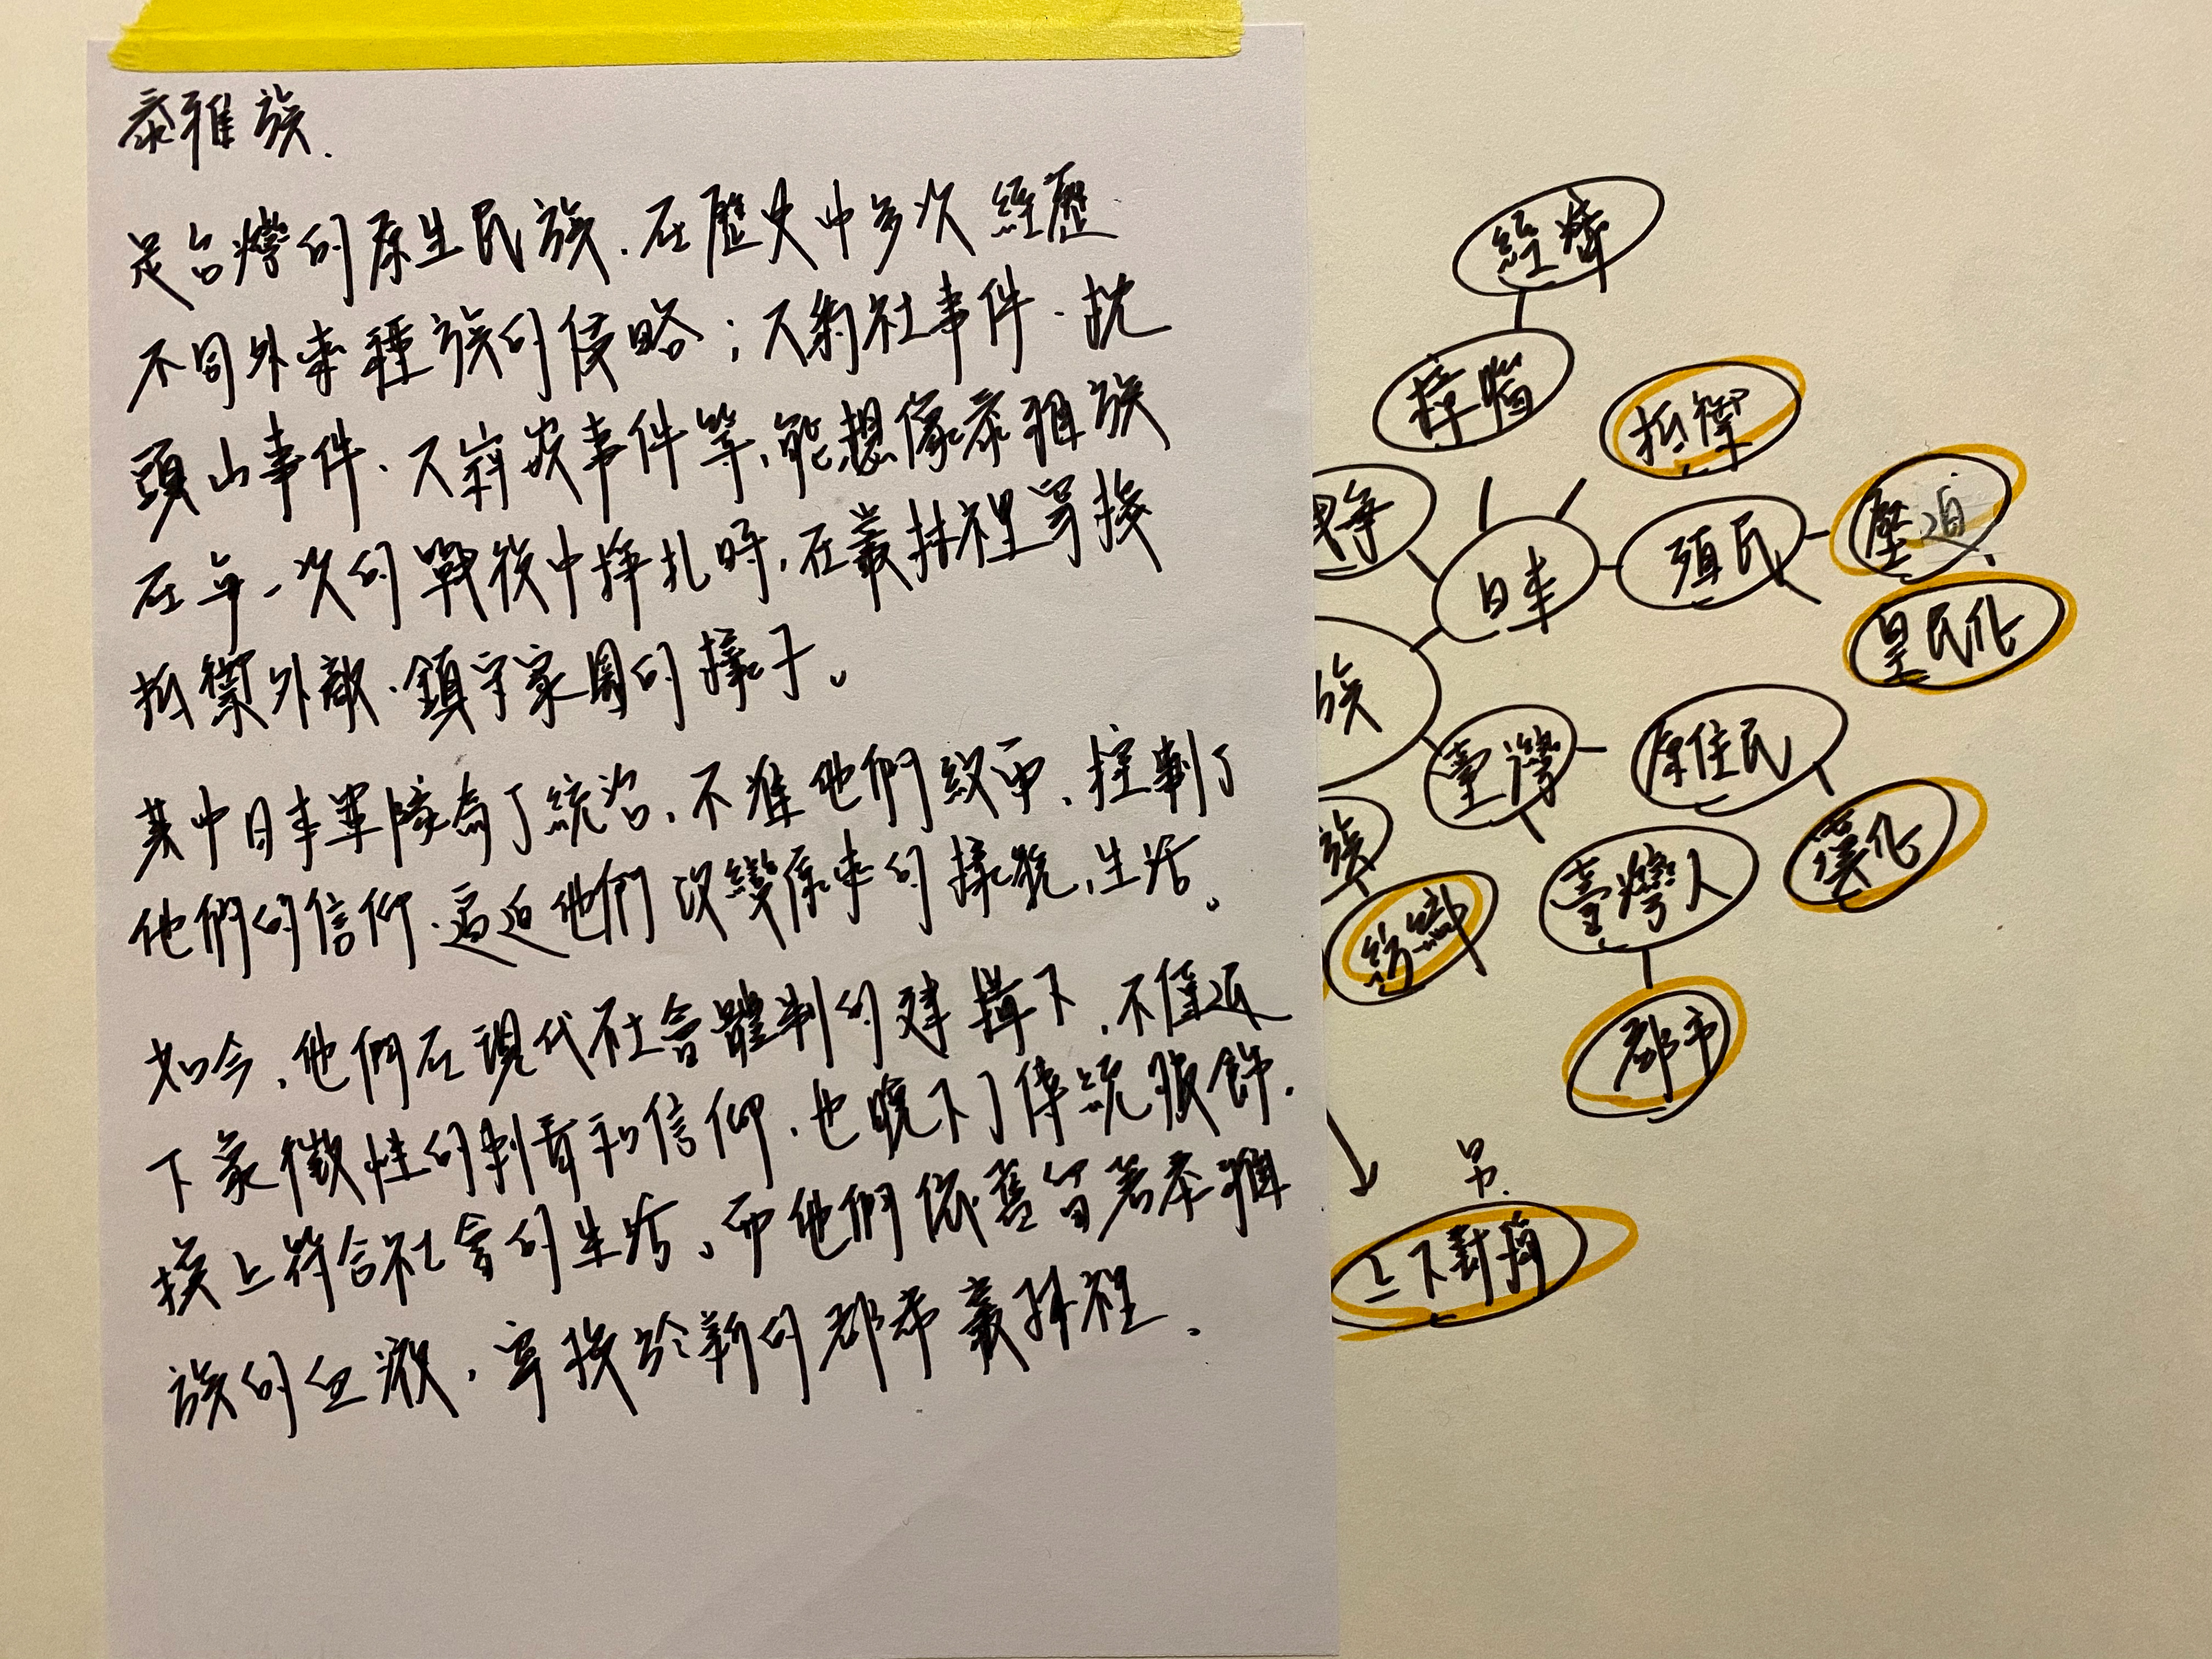 泰雅族.
是台灣的原生民族.在歷史中多次經歷
不同外來種族的侵略;大豹社事件.枕
頭山事件.大嵙崁事件等,能想像泰雅族
在每一次的戰役中掙扎時,在叢林裡穿梭
抵禦外敵.鎮守家園的樣子。
其中日本軍隊為了統治,不准他們紋面,控制了
他們的信仰.逼迫他們改變原來的樣貌,生活。
如今,他們在現代社會體制的建構下,不僅
下象徵性的刺青和信仰,也脫下了傳統服飾.
換上符合社會的生活,而他們依舊留著泰雅
族的血液,穿梭於新的都市叢林裡.
經濟
樟腦
抵禦
戰爭
日本
頭民
壓迫
皇民化
族
臺灣
原住民
漢化
族
紡織
臺灣人
都市
上下對稱